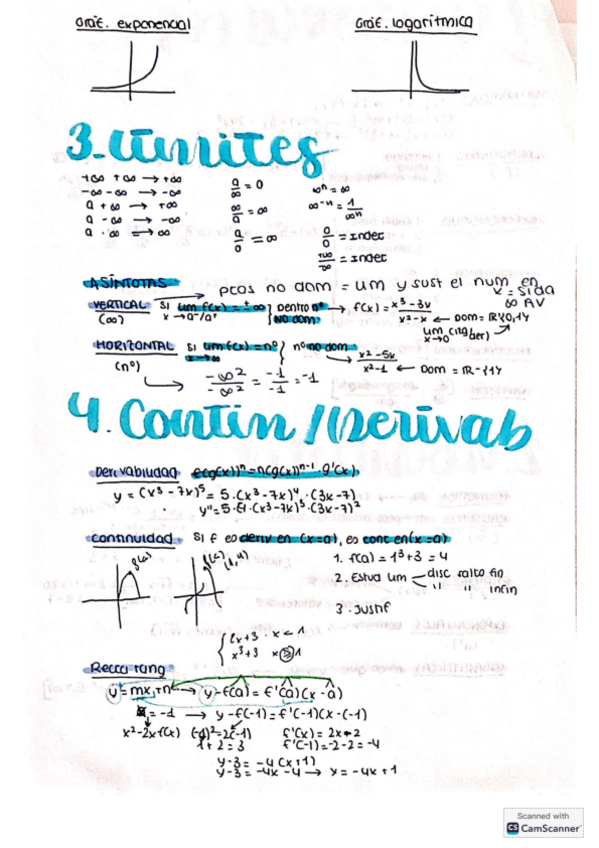 Gráf. exponencial
Gráf. logarítmica
3. Límites
+∞ +∞ → +∞
-∞ -∞ → -∞
a + ∞ → +∞
a - ∞ → -∞
a · ∞ => ∞
a/∞ = 0
∞/a = ∞
a/0 = ∞
∞ⁿ = ∞
∞⁻ⁿ = 1/∞ⁿ
0/0 = Indet
±∞/∞ = Indet
ASÍNTOTAS
pcos no dom = lim y sust el num en x = si da ∞ AV
VERTICAL (∞) Si lim f(x) = ±∞ x→a⁻/a⁺ } Dentro nº NO dom → f(x) = x³-3x/x²-x ← Dom = ℝ-{0,1}
lim x→0 (izq/der)
HORIZONTAL (nº) si lim f(x) = nº x→∞ { nº no dom → x²-5x/x²-1 ← Dom = ℝ-{1}
-∞²/-∞² = -1/-1 = -1
4. Contin/Derivab
Derivabilidad f(g(x))ⁿ = n(g(x))ⁿ⁻¹ · g'(x)
y = (x³ - 7x)⁵ = 5·(x³ - 7x)⁴ · (3x - 7)
y'' = 5·4·(x³ - 7x)³ · (3x - 7)²
Continuidad Si f es deriv en (x=a), es cont en (x=a)
1. f(a) = 1³+3 = 4
2. Estud lim disc salto fin
" " infin
3. Justif
2x+3 · x < 1
x³+3 x ≥ 1
Recta tang
y = mx + n → y - f(a) = f'(a)(x - a)
= -1 → y - f(-1) = f'(-1)(x - (-1)
x² - 2x f(x) (-1)² - 2(-1) f'(x) = 2x - 2
1 + 2 = 3 f'(-1) = -2 - 2 = -4
y - 3 = -4(x+1)
y - 3 = -4x - 4 → y = -4x + 1
Scanned with
CS CamScanner